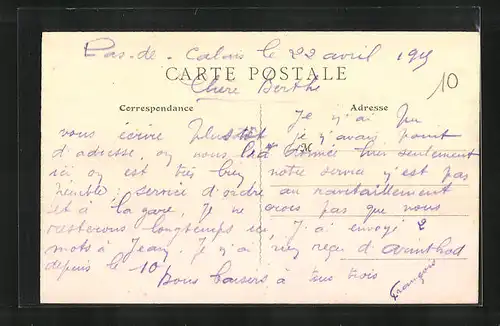 Pas-de-Calais le 22 avril 1915
CARTE POSTALE
10
Chere Berthe
Correspondance
Adresse
Je n'ai pu
vous écrire plustôt je n'avais point
d'adresse, on nous l'a donnée hier seulement
ici on est très bien notre service n'est pas
penible: service d'ordre au ravitaillement
et à la gare, Je ne crois pas que nous
resterons longtemps ici, J'ai envoyé 2
mots à Jean, Je n'ai rien reçu d'
depuis le 10
Bons baisers à tous trois
François